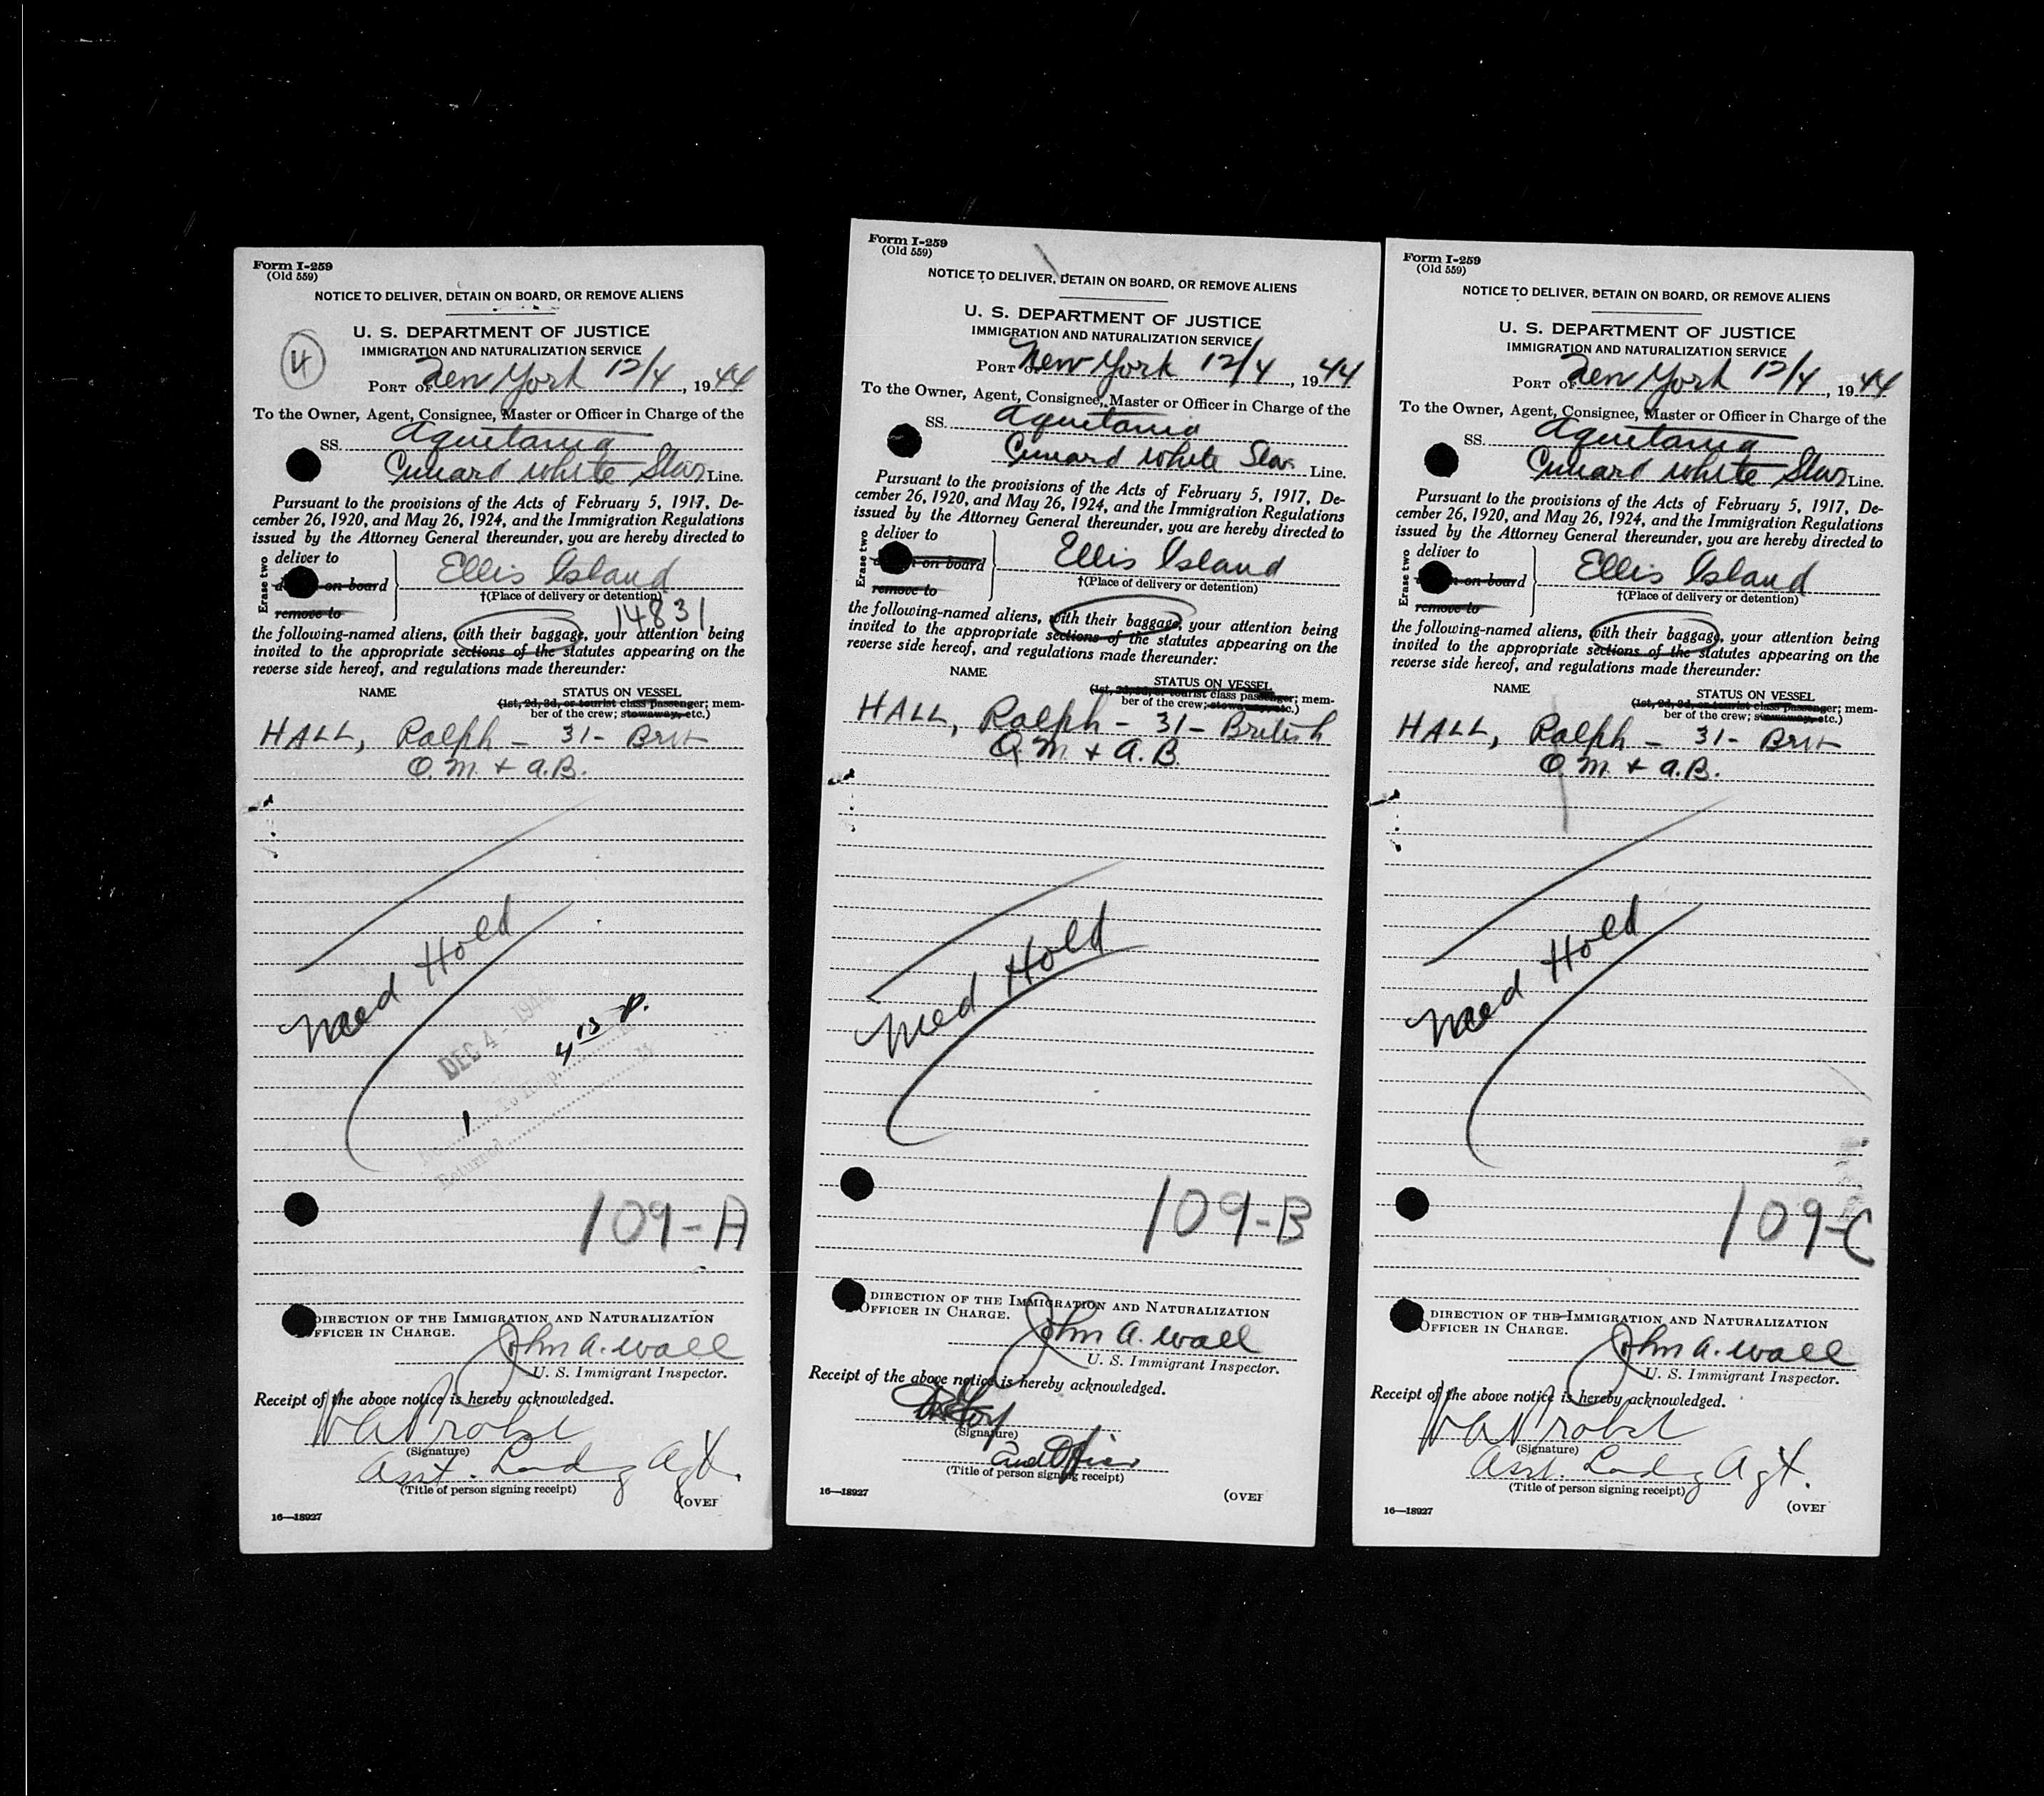 Form I-259
(Old 559)
NOTICE TO DELIVER, DETAIN ON BOARD, OR REMOVE ALIENS
U. S. DEPARTMENT OF JUSTICE
IMMIGRATION AND NATURALIZATION SERVICE
4
PORT OF New York 12/4, 1944
To the Owner, Agent, Consignee, Master or Officer in Charge of the
SS. Aquitania
Cunard White Star Line.
Pursuant to the provisions of the Acts of February 5, 1917, De-
cember 26, 1920, and May 26, 1924, and the Immigration Regulations
issued by the Attorney General thereunder, you are hereby directed to
Erase two
deliver to
on board
remove to
Ellis Island
†(Place of delivery or detention)
14831
the following-named aliens, with their baggage, your attention being
invited to the appropriate sections of the statutes appearing on the
reverse side hereof, and regulations made thereunder:
NAME
STATUS ON VESSEL
(1st, 2d, 3d, or tourist class passenger; mem-
ber of the crew; stowaway, etc.)
HALL, Ralph - 31 - Brit
Q.M. + A.B.
Med Hold
DEC 4 - 1944
4 15 P.
1 To Hosp.
Returned
109-A
DIRECTION OF THE IMMIGRATION AND NATURALIZATION
OFFICER IN CHARGE.
John A. Wall
U. S. Immigrant Inspector.
Receipt of the above notice is hereby acknowledged.
(Signature)
Asst. Landg Agt.
(Title of person signing receipt)
(OVER
16—18927
Form I-259
(Old 559)
NOTICE TO DELIVER, DETAIN ON BOARD, OR REMOVE ALIENS
U. S. DEPARTMENT OF JUSTICE
IMMIGRATION AND NATURALIZATION SERVICE
PORT OF New York 12/4, 1944
To the Owner, Agent, Consignee, Master or Officer in Charge of the
SS. Aquitania
Cunard White Star Line.
Pursuant to the provisions of the Acts of February 5, 1917, De-
cember 26, 1920, and May 26, 1924, and the Immigration Regulations
issued by the Attorney General thereunder, you are hereby directed to
Erase two
deliver to
on board
remove to
Ellis Island
†(Place of delivery or detention)
the following-named aliens, with their baggage, your attention being
invited to the appropriate sections of the statutes appearing on the
reverse side hereof, and regulations made thereunder:
NAME
STATUS ON VESSEL
(1st, 2d, 3d, or tourist class passenger; mem-
ber of the crew; stowaway, etc.)
HALL, Ralph - 31 - British
Q.M. + A.B.
Med Hold
109-B
DIRECTION OF THE IMMIGRATION AND NATURALIZATION
OFFICER IN CHARGE.
John A. Wall
U. S. Immigrant Inspector.
Receipt of the above notice is hereby acknowledged.
(Signature)
(Title of person signing receipt)
16—18927
(OVER
Form I-259
(Old 559)
NOTICE TO DELIVER, DETAIN ON BOARD, OR REMOVE ALIENS
U. S. DEPARTMENT OF JUSTICE
IMMIGRATION AND NATURALIZATION SERVICE
PORT OF New York 12/4, 1944
To the Owner, Agent, Consignee, Master or Officer in Charge of the
SS. Aquitania
Cunard White Star Line.
Pursuant to the provisions of the Acts of February 5, 1917, De-
cember 26, 1920, and May 26, 1924, and the Immigration Regulations
issued by the Attorney General thereunder, you are hereby directed to
Erase two
deliver to
on board
remove to
Ellis Island
†(Place of delivery or detention)
the following-named aliens, with their baggage, your attention being
invited to the appropriate sections of the statutes appearing on the
reverse side hereof, and regulations made thereunder:
NAME
STATUS ON VESSEL
(1st, 2d, 3d, or tourist class passenger; mem-
ber of the crew; stowaway, etc.)
HALL, Ralph - 31 - Brit
Q.M. + A.B.
Med Hold
109-C
DIRECTION OF THE IMMIGRATION AND NATURALIZATION
OFFICER IN CHARGE.
John A. Wall
U. S. Immigrant Inspector.
Receipt of the above notice is hereby acknowledged.
(Signature)
Asst. Landg Agt.
(Title of person signing receipt)
(OVER
16—18927